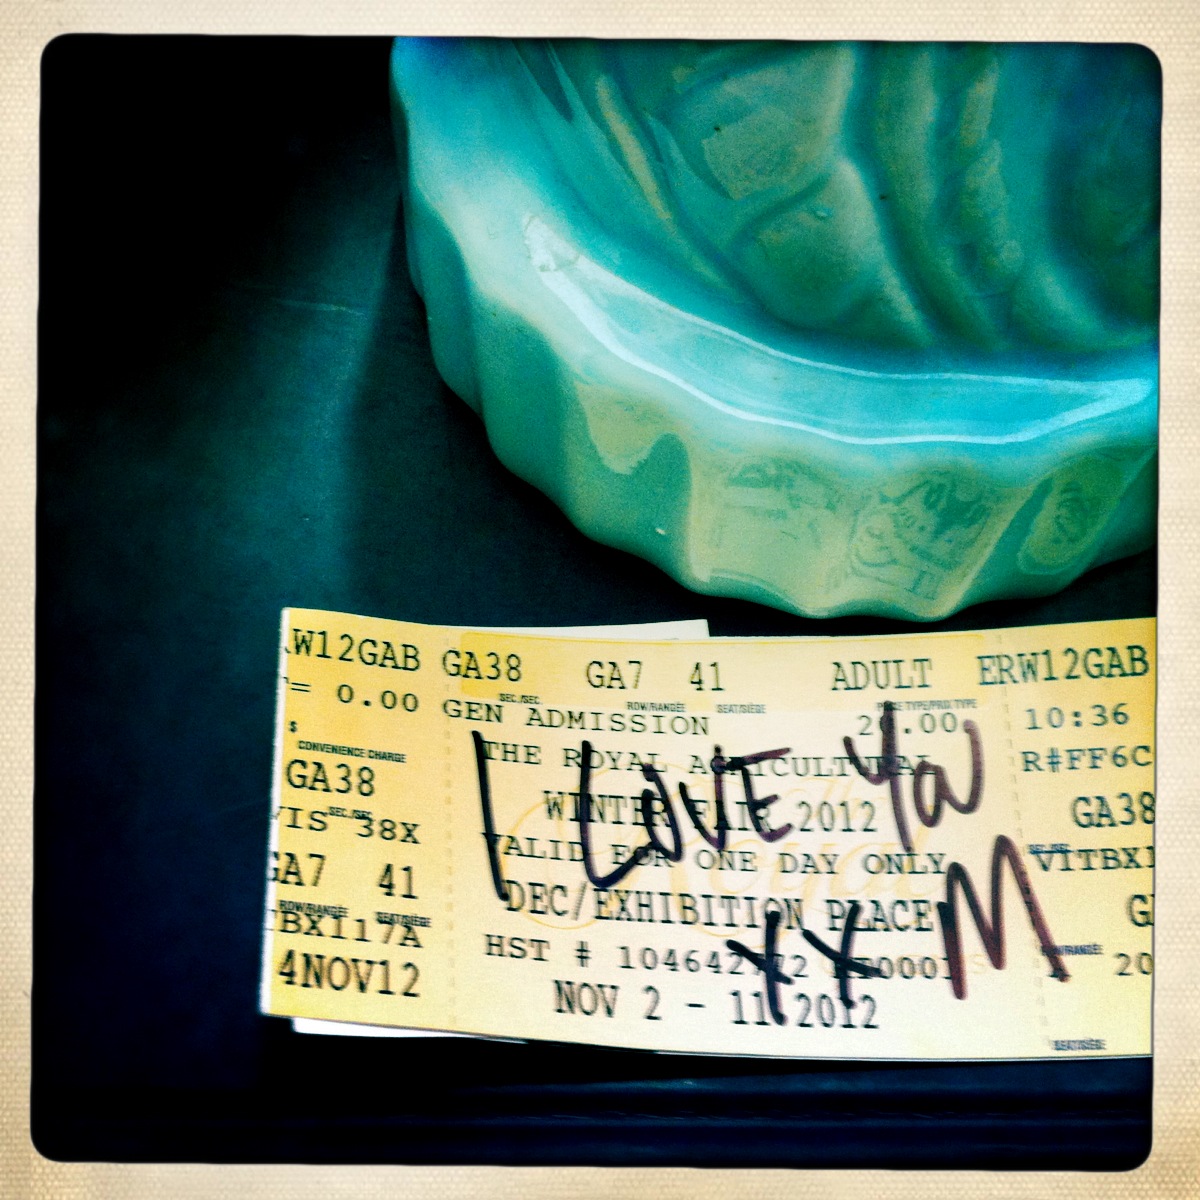 W12GAB GA38 GA7 41 ADULT ERW12GAB
= 0.00 SEC./SEC. ROW/RANGÉE SEAT/SIÈGE TYPE/PRIX TYPE
$ GEN ADMISSION 2 .00 10:36
CONVENIENCE CHARGE THE ROYAL AGRICULTURAL R#FF6C
GA38 WINTER FAIR 2012 GA38
VIS 38X VALID FOR ONE DAY ONLY VITBX1
GA7 41 DEC/EXHIBITION PLACE
ROW/RANGÉE SEAT/SIÈGE
TBX117A HST # 104642772
4NOV12 NOV 2 - 11 2012 20
SEAT/SIÈGE
I LOVE YOU
XX M